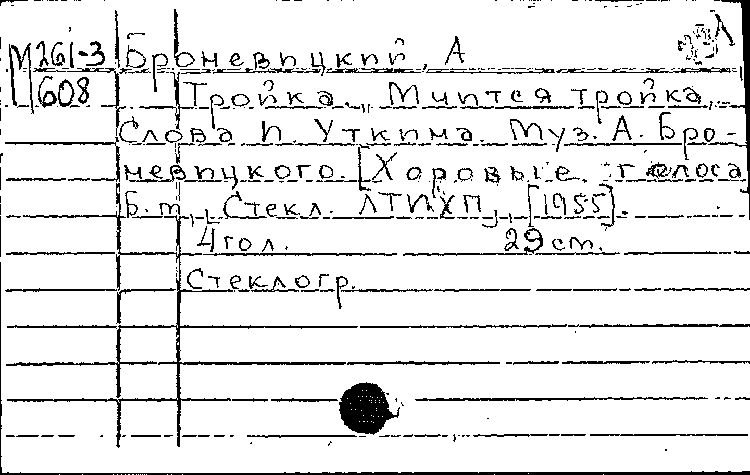 М261-3 Броневицкий, А
608 Тройка. „Мчится тройка„
Слова И. Уткина. Муз. А. Бро-
невицкого. [Хоровые голоса]
Б.м., Стекл. ЛТИХП, [1955].
4 гол. 29 см.
Стеклогр.